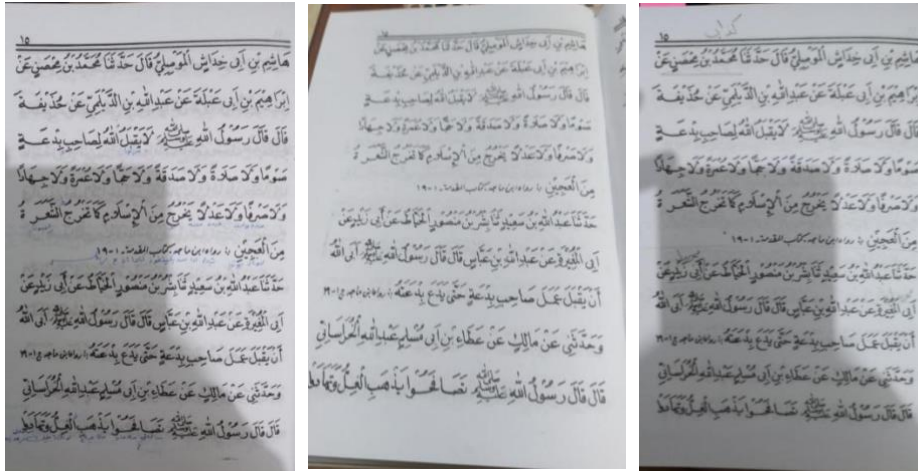 ١٥
هَاشِمِ بْنِ اَبِى خِدَاشٍ الْمَوْصِلِيُّ قَالَ حَدَّثَنَا مُحَمَّدُ بْنُ مِحْصَنٍ عَنْ
اِبْرَاهِيْمَ بْنِ اَبِى عَبْلَةَ عَنْ عَبْدِاللهِ بْنِ الدَّيْلَمِيِّ عَنْ حُذَيْفَةَ
قَالَ قَالَ رَسُوْلُ اللهِ ﷺ لَايَقْبَلُ اللهُ لِصَاحِبِ بِدْعَةٍ
صَوْمًا وَلَا صَلَاةً وَلَا صَدَقَةً وَلَا حَجًّا وَلَا عُمْرَةً وَلَا جِهَادًا
وَلَا صَرْفًا وَلَا عَدْلًا يَخْرُجُ مِنَ الْاِسْلَامِ كَمَا تَخْرُجُ الشَّعَرَةُ
مِنَ الْعَجِيْنِ ؛ رواه ابن ماجه كتاب المقدمة ١٩٠١
حَدَّثَنَا عَبْدُ اللهِ بْنُ سَعِيْدٍ ثَنَا بِشْرُ بْنُ مَنْصُوْرٍ الْخَيَّاطُ عَنْ اَبِى زَيْدٍ عَنْ
اَبِى الْمُغِيْرَةِ عَنْ عَبْدِ اللهِ بْنِ عَبَّاسٍ قَالَ قَالَ رَسُوْلُ اللهِ ﷺ اَبَى اللهُ
أَنْ يَقْبَلَ عَمَلَ صَاحِبِ بِدْعَةٍ حَتَّى يَدَعَ بِدْعَتَهُ
وَحَدَّثَنِى عَنْ مَالِكٍ عَنْ عَطَاءِ بْنِ اَبِى مُسْلِمٍ عَبْدِاللهِ الْخُرَاسَانِيِّ
قَالَ قَالَ رَسُوْلُ اللهِ ﷺ تَصَافَحُوْا يَذْهَبِ الْغِلُّ وَتَهَادَوْا
١٥
هَاشِمِ بْنِ اَبِى خِدَاشٍ الْمَوْصِلِيُّ قَالَ حَدَّثَنَا مُحَمَّدُ بْنُ مِحْصَنٍ عَنْ
اِبْرَاهِيْمَ بْنِ اَبِى عَبْلَةَ عَنْ عَبْدِاللهِ بْنِ الدَّيْلَمِيِّ عَنْ حُذَيْفَةَ
قَالَ قَالَ رَسُوْلُ اللهِ ﷺ لَايَقْبَلُ اللهُ لِصَاحِبِ بِدْعَةٍ
صَوْمًا وَلَا صَلَاةً وَلَا صَدَقَةً وَلَا حَجًّا وَلَا عُمْرَةً وَلَا جِهَادًا
وَلَا صَرْفًا وَلَا عَدْلًا يَخْرُجُ مِنَ الْاِسْلَامِ كَمَا تَخْرُجُ الشَّعَرَةُ
مِنَ الْعَجِيْنِ ؛ رواه ابن ماجه كتاب المقدمة ١٩٠١
حَدَّثَنَا عَبْدُ اللهِ بْنُ سَعِيْدٍ ثَنَا بِشْرُ بْنُ مَنْصُوْرٍ الْخَيَّاطُ عَنْ اَبِى زَيْدٍ عَنْ
اَبِى الْمُغِيْرَةِ عَنْ عَبْدِ اللهِ بْنِ عَبَّاسٍ قَالَ قَالَ رَسُوْلُ اللهِ ﷺ اَبَى اللهُ
أَنْ يَقْبَلَ عَمَلَ صَاحِبِ بِدْعَةٍ حَتَّى يَدَعَ بِدْعَتَهُ
وَحَدَّثَنِى عَنْ مَالِكٍ عَنْ عَطَاءِ بْنِ اَبِى مُسْلِمٍ عَبْدِاللهِ الْخُرَاسَانِيِّ
قَالَ قَالَ رَسُوْلُ اللهِ ﷺ تَصَافَحُوْا يَذْهَبِ الْغِلُّ وَتَهَادَوْا
١٥
هَاشِمِ بْنِ اَبِى خِدَاشٍ الْمَوْصِلِيُّ قَالَ حَدَّثَنَا مُحَمَّدُ بْنُ مِحْصَنٍ عَنْ
اِبْرَاهِيْمَ بْنِ اَبِى عَبْلَةَ عَنْ عَبْدِاللهِ بْنِ الدَّيْلَمِيِّ عَنْ حُذَيْفَةَ
قَالَ قَالَ رَسُوْلُ اللهِ ﷺ لَايَقْبَلُ اللهُ لِصَاحِبِ بِدْعَةٍ
صَوْمًا وَلَا صَلَاةً وَلَا صَدَقَةً وَلَا حَجًّا وَلَا عُمْرَةً وَلَا جِهَادًا
وَلَا صَرْفًا وَلَا عَدْلًا يَخْرُجُ مِنَ الْاِسْلَامِ كَمَا تَخْرُجُ الشَّعَرَةُ
مِنَ الْعَجِيْنِ ؛ رواه ابن ماجه كتاب المقدمة ١٩٠١
حَدَّثَنَا عَبْدُ اللهِ بْنُ سَعِيْدٍ ثَنَا بِشْرُ بْنُ مَنْصُوْرٍ الْخَيَّاطُ عَنْ اَبِى زَيْدٍ عَنْ
اَبِى الْمُغِيْرَةِ عَنْ عَبْدِ اللهِ بْنِ عَبَّاسٍ قَالَ قَالَ رَسُوْلُ اللهِ ﷺ اَبَى اللهُ
أَنْ يَقْبَلَ عَمَلَ صَاحِبِ بِدْعَةٍ حَتَّى يَدَعَ بِدْعَتَهُ
وَحَدَّثَنِى عَنْ مَالِكٍ عَنْ عَطَاءِ بْنِ اَبِى مُسْلِمٍ عَبْدِاللهِ الْخُرَاسَانِيِّ
قَالَ قَالَ رَسُوْلُ اللهِ ﷺ تَصَافَحُوْا يَذْهَبِ الْغِلُّ وَتَهَادَوْا